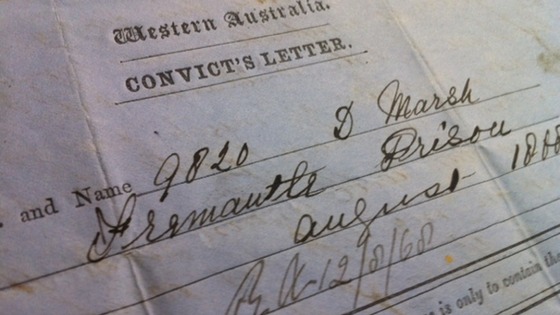 Western Australia.
CONVICT'S LETTER.
. and Name 9820 D Marsh
Fremantle Prison
august 1868
12/8/68
is only to contain the